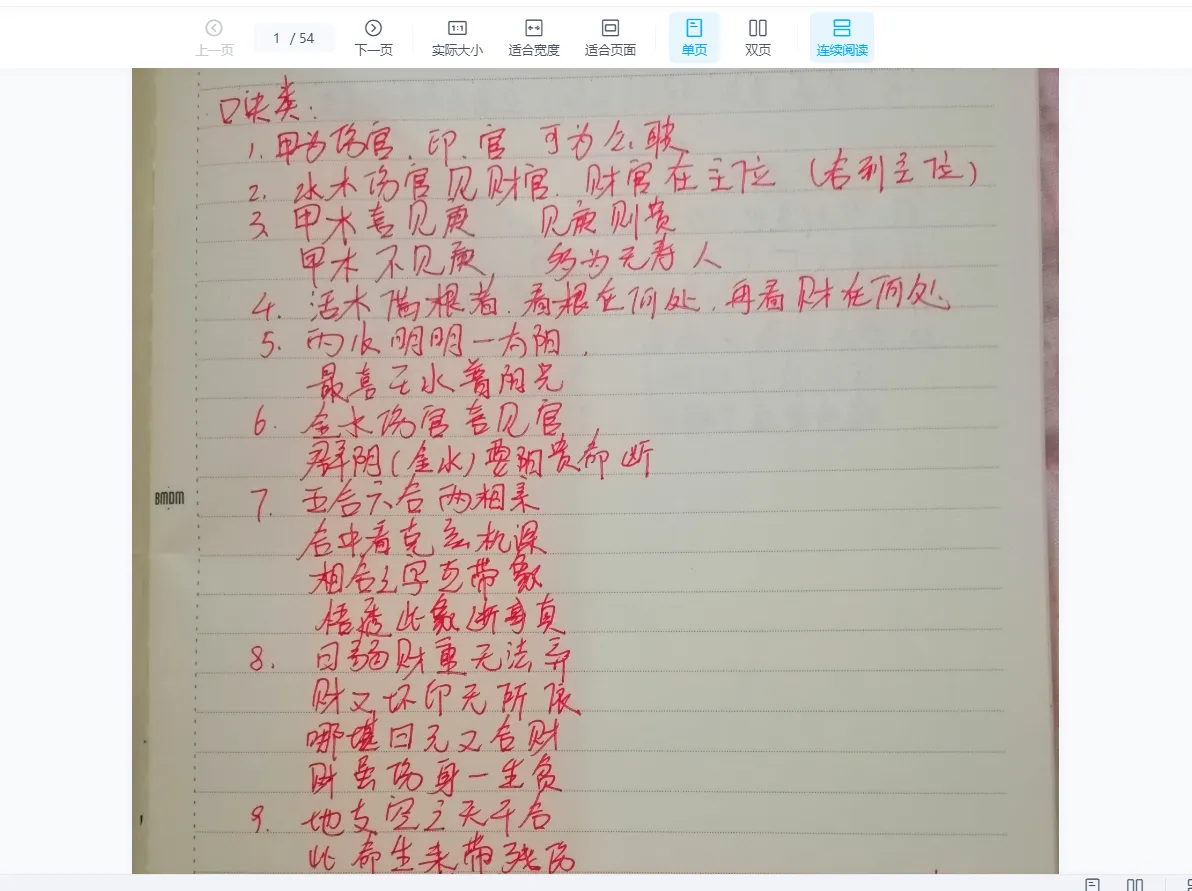 上一页 1 / 54 下一页 1:1 实际大小 适合宽度 适合页面 单页 双页 连续阅读
口诀类:
1. 甲为伤官、印、官 可为公职
2. 水木伤官见财官、财官在主位 (合到主位)
3、甲木喜见庚 见庚则贵
甲木不见庚, 多为无寿人
4. 活木 根者、看根在何处、再看财在何处
5. 丙火明明一太阳,
最喜壬水着阳光
6. 金水伤官喜见官,
群阴(金水)要阳贵命断
BMDM
7. 五合六合两相亲
合中看克玄机深
相合之字克带象
悟透此象断事真
8. 日弱财重无法弃
财又坏印无所依
哪堪日元又合财
财虽伤身一生负
9. 地支空亡天干合
此命生来带残伤